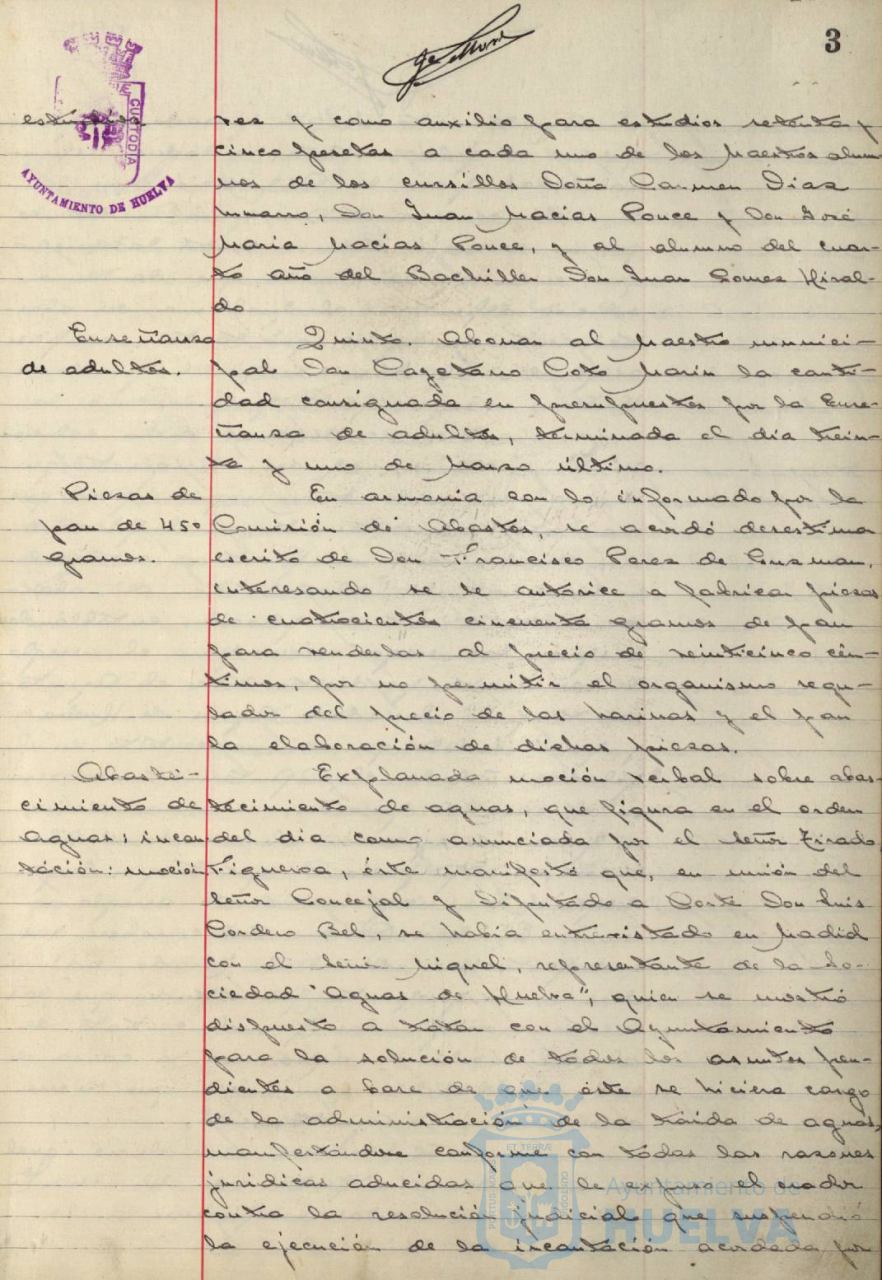 3
CUSTODIA
AYUNTAMIENTO DE HUELVA
estudios
res y como auxilio para estudios setenta y
cinco pesetas a cada uno de los Maestros alum
nos de los cursillos Doña Carmen Diaz
Navarro, Don Juan Macías Ponce y Don José
Maria Macías Ponce, y al alumno del cuar-
to año del Bachiller Don Juan Gomez Hiral-
do
Enseñanza
de adultos.
Quinto. Abonar al Maestro munici-
pal Don Cayetano Coto Marin la canti-
dad consignada en presupuestos por la Ense-
ñanza de adultos, terminada el dia trein-
ta y uno de Marzo último.
Piezas de
pan de 450
gramos.
En armonia con lo informado por la
Comisión de Abastos, se acordó desestimar
escrito de Don Francisco Perez de Guzman,
interesando se le autorice a fabricar piezas
de cuatrocientos cincuenta gramos de pan
para venderlas al precio de veinticinco cén-
timos, por no permitir el organismo regu-
lador del precio de las harinas y el pan
la elaboración de dichas piezas.
Abaste-
cimiento de
aguas: incau
tación: moción
Explanada moción verbal sobre abas-
tecimiento de aguas, que figura en el orden
del dia como anunciada por el Señor Tirado
Figueroa, éste manifestó que, en unión del
Señor Concejal y Diputado a Corte Don Luis
Cordero Bel, se había entrevistado en Madrid
con el Señor Miquel, representante de la So-
ciedad "Aguas de Huelva", quien se mostró
dispuesto a tratar con el Ayuntamiento
para la solución de todos los asuntos pen-
dientes a base de que éste se hiciera cargo
de la administración de la traida de aguas,
manifestándose conforme con todas las razones
juridicas aducidas que le expuso el orador
contra la resolución judicial que suspendió
la ejecución de la incautación acordada por
Ayuntamiento de
HUELVA